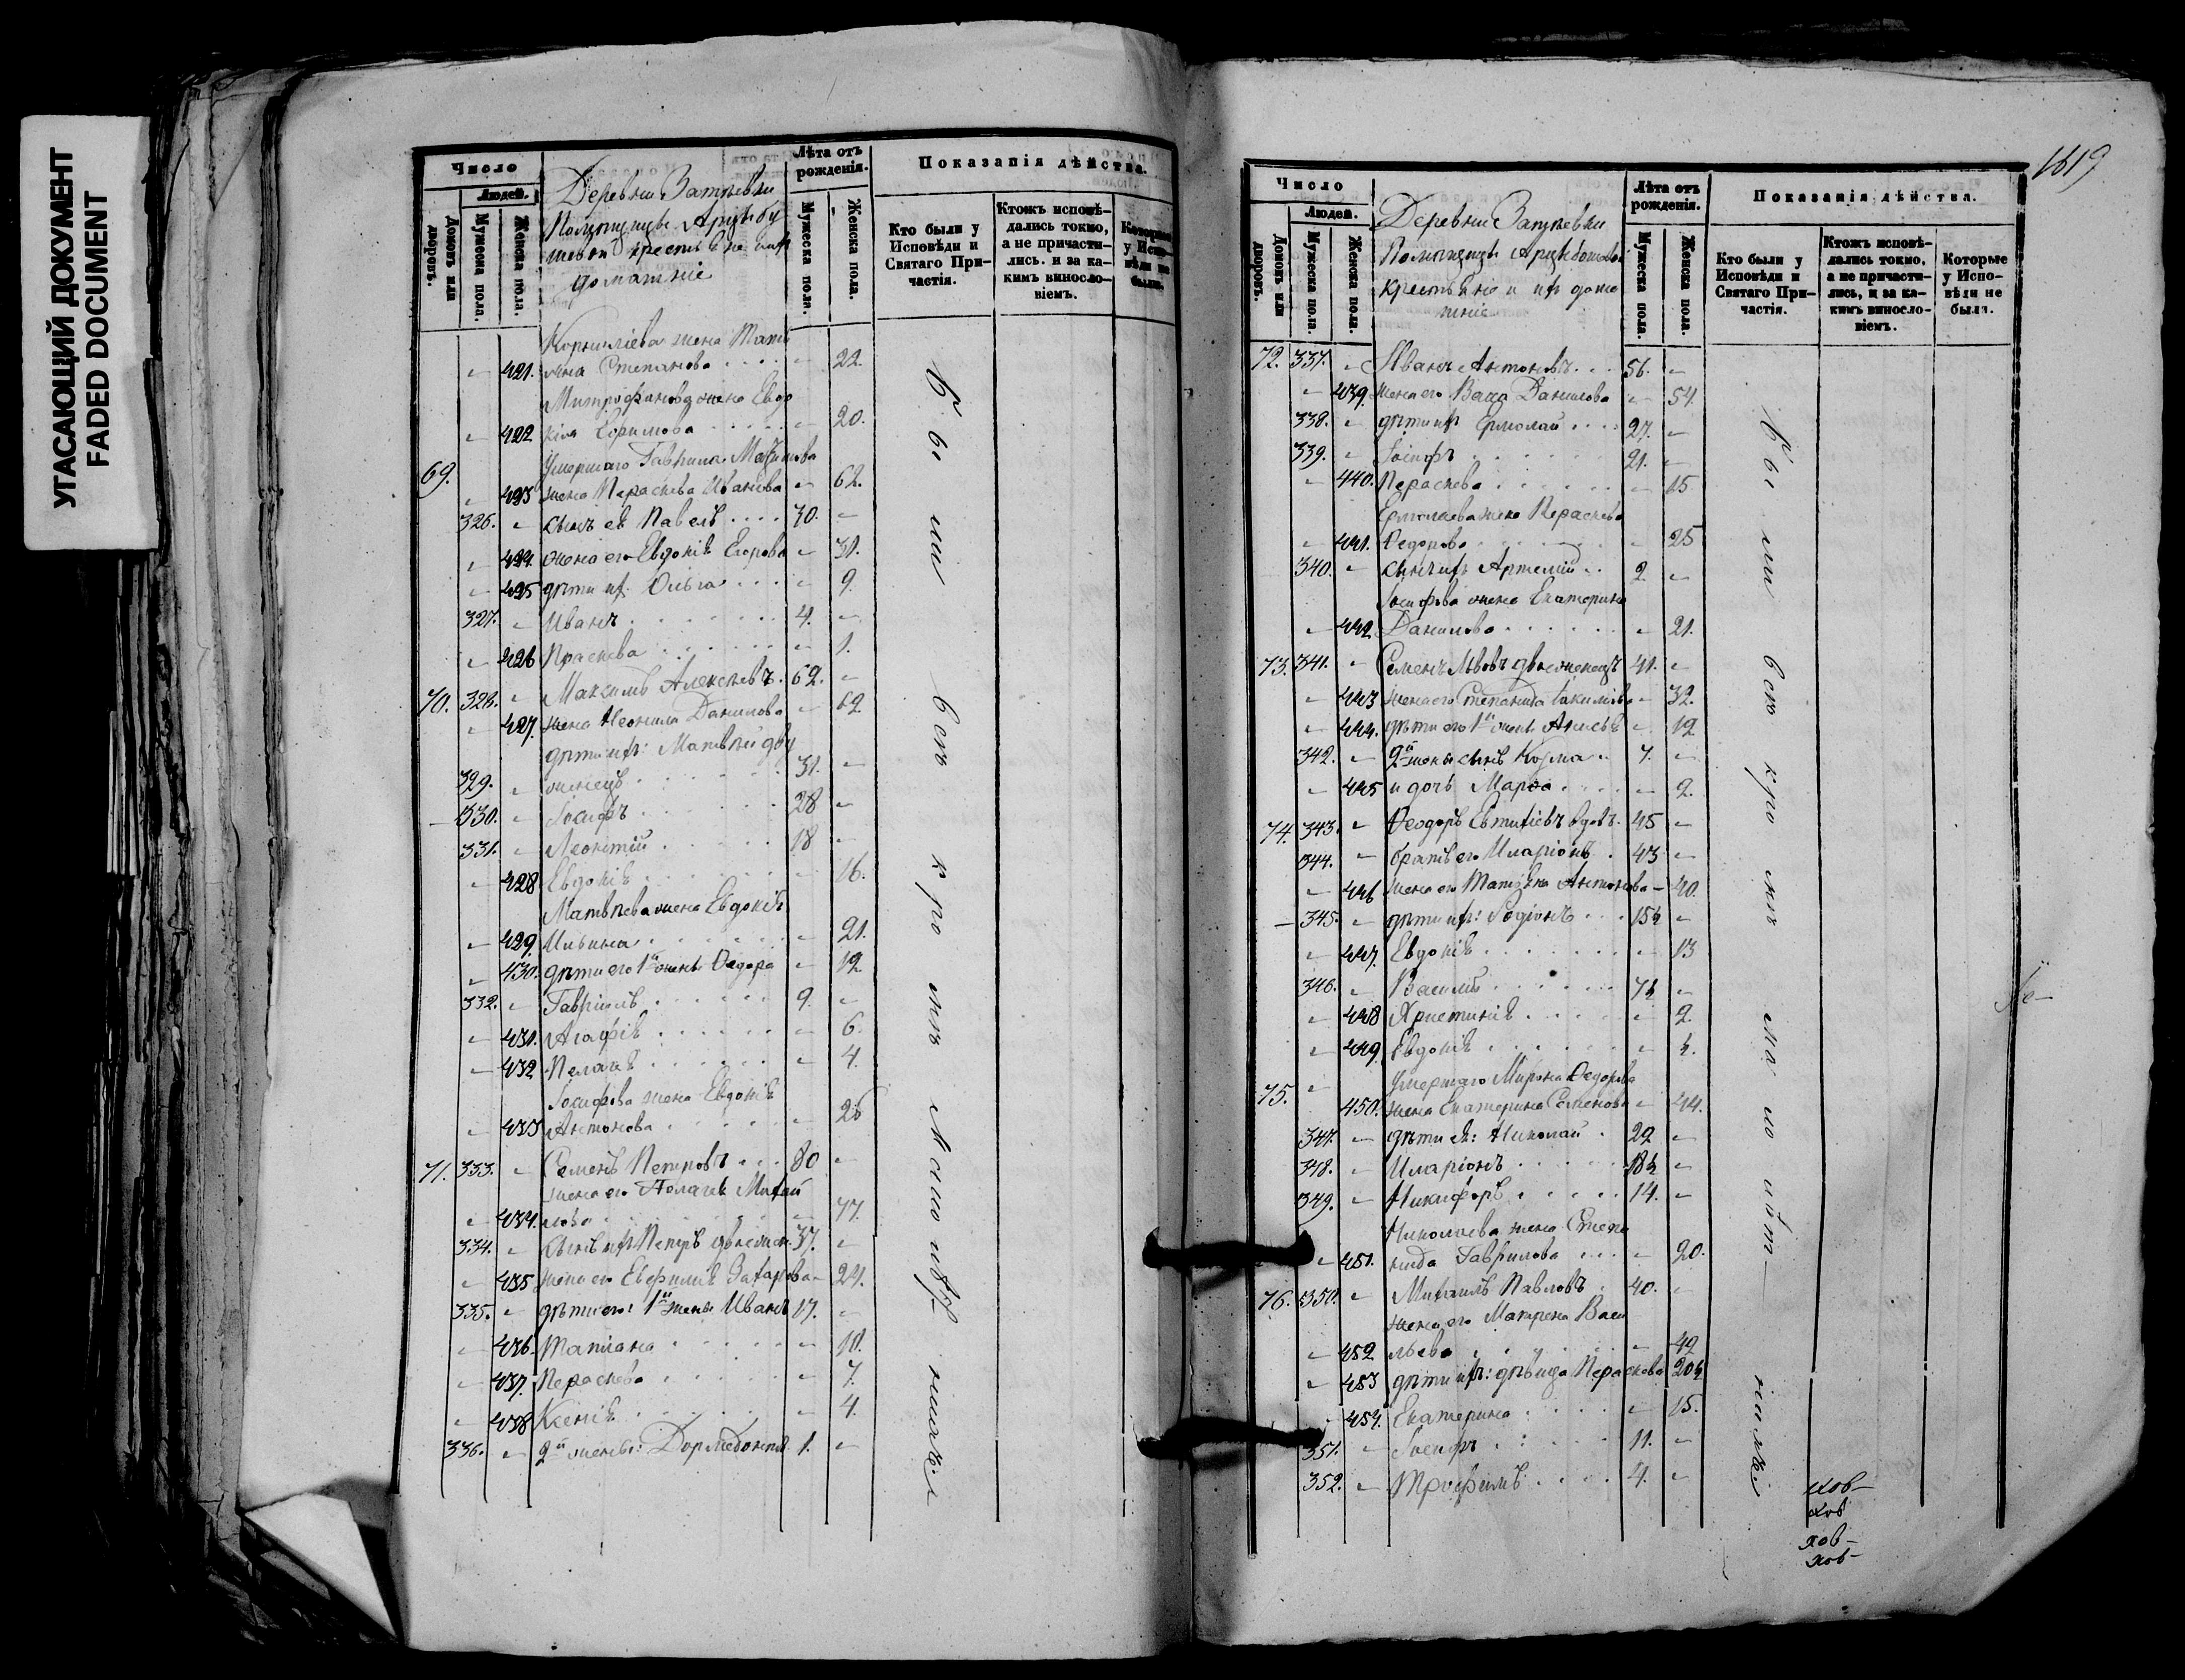 УГАСАЮЩИЙ ДОКУМЕНТ
FADED DOCUMENT
Число
Людей.
Домовъ или дворовъ.
Мужеска пола.
Женска пола.
Деревни
Помѣщицы
крестьяне и ихъ
домашніе
Лѣта отъ рожденія.
Мужеска пола.
Женска пола.
Показанія дѣйства.
Кто были у Исповѣди и Святаго Причастія.
Ктожъ исповѣдались токмо, а не причастились. и за какимъ винословіемъ.
Которые у Исповѣди не были.
Корнилiева жена Тать
421. яна Степанова 22.
Митрофанова жена Евдо
422 кiя 20.
69. Умершаго Гаврила
423 жена Параскева Иванова 62.
326. сынъ ея Павелъ 30.
424. жена его Евдокія Егорова 31.
425 дѣти ихъ Ольга 9.
327. Иванъ 4.
426 Праскева 1.
70. 328. Максимъ Алексѣевъ 62.
427. жена Неонила Данилова 62
дѣти ихъ: Матвѣй дву
329. женецъ 31.
330. Іосифъ 28
331. Леонтій 18
428 Евдокія 16.
Матвѣева жена Евдокія
429. Ильина 21.
430. дѣти его 1й жены Ѳедора 12
332. Гавріилъ 9.
431. Агафія 6.
432 Пелагея 4.
Іосифова жена Евдокія
433 Антонова 26
71. 333. Семенъ Петровъ 80
жена его Пелагея Михай
434. лова 77.
334. сынъ ихъ Петръ двоежен. 37.
435 жена его Евфимія Захарова 24.
335. дѣти его: 1й жены Иванъ 17.
436. Татіана 11.
437. Параскева 7.
438 Ксенія 4.
336. 2й жены: Дормедонтъ 1.
Были всѣ кромѣ малолѣтнихъ
1619
Число
Людей.
Домовъ или дворовъ.
Мужеска пола.
Женска пола.
Деревни
Помѣщицы
крестьяне и ихъ дома
шніе
Лѣта отъ рожденія.
Мужеска пола.
Женска пола.
Показанія дѣйства.
Кто были у Исповѣди и Святаго Причастія.
Ктожъ исповѣдались токмо, а не причастились, и за какимъ винословіемъ.
Которые у Исповѣди не была.
72. 337. Иванъ Антоновъ 56.
439. жена его Васса Данилова 54.
338. дѣти ихъ Ермолай 27.
339. Іосифъ 21.
440. Параскева 15
Ермолаева жена Параскева
441. Ѳедорова 25
340. сынъ ихъ Артемій 2
Іосифова жена Екатерина
442 Данилова 21.
73. 341. Семенъ Львовъ двоеженецъ 41.
443 жена его Степанида 32.
444. дѣти его 1й жены 12
342. 2й жены сынъ Козма 7.
445 и дочь Марѳа 2.
74. 343. Ѳеодоръ Евтихіевъ вдовъ 45
344. братъ его Иларіонъ 43
446 жена его Татіана Антонова 40.
345. дѣти ихъ: Родіонъ 15½
447. Евдокія 13
346. Василій 7½
448 Христинія 2
449. Евдокія ½.
75. Умершаго Мирона Ѳедорова
450. жена Екатерина Семенова 44.
347. дѣти ея: Николай 22
348. Иларіонъ 18½
349. Никифоръ 14.
Николаева жена Степа
451. нида Гаврилова 20.
76. 350. Михаилъ Павловъ 40.
жена его Матрена Васи
452 льева 42
453 дѣти ихъ: дѣвица Параскева 20½
454. Екатерина 15.
351. Іосифъ 11.
352. Трофимъ 4.
Были всѣ кромѣ малолѣт-
нихъ